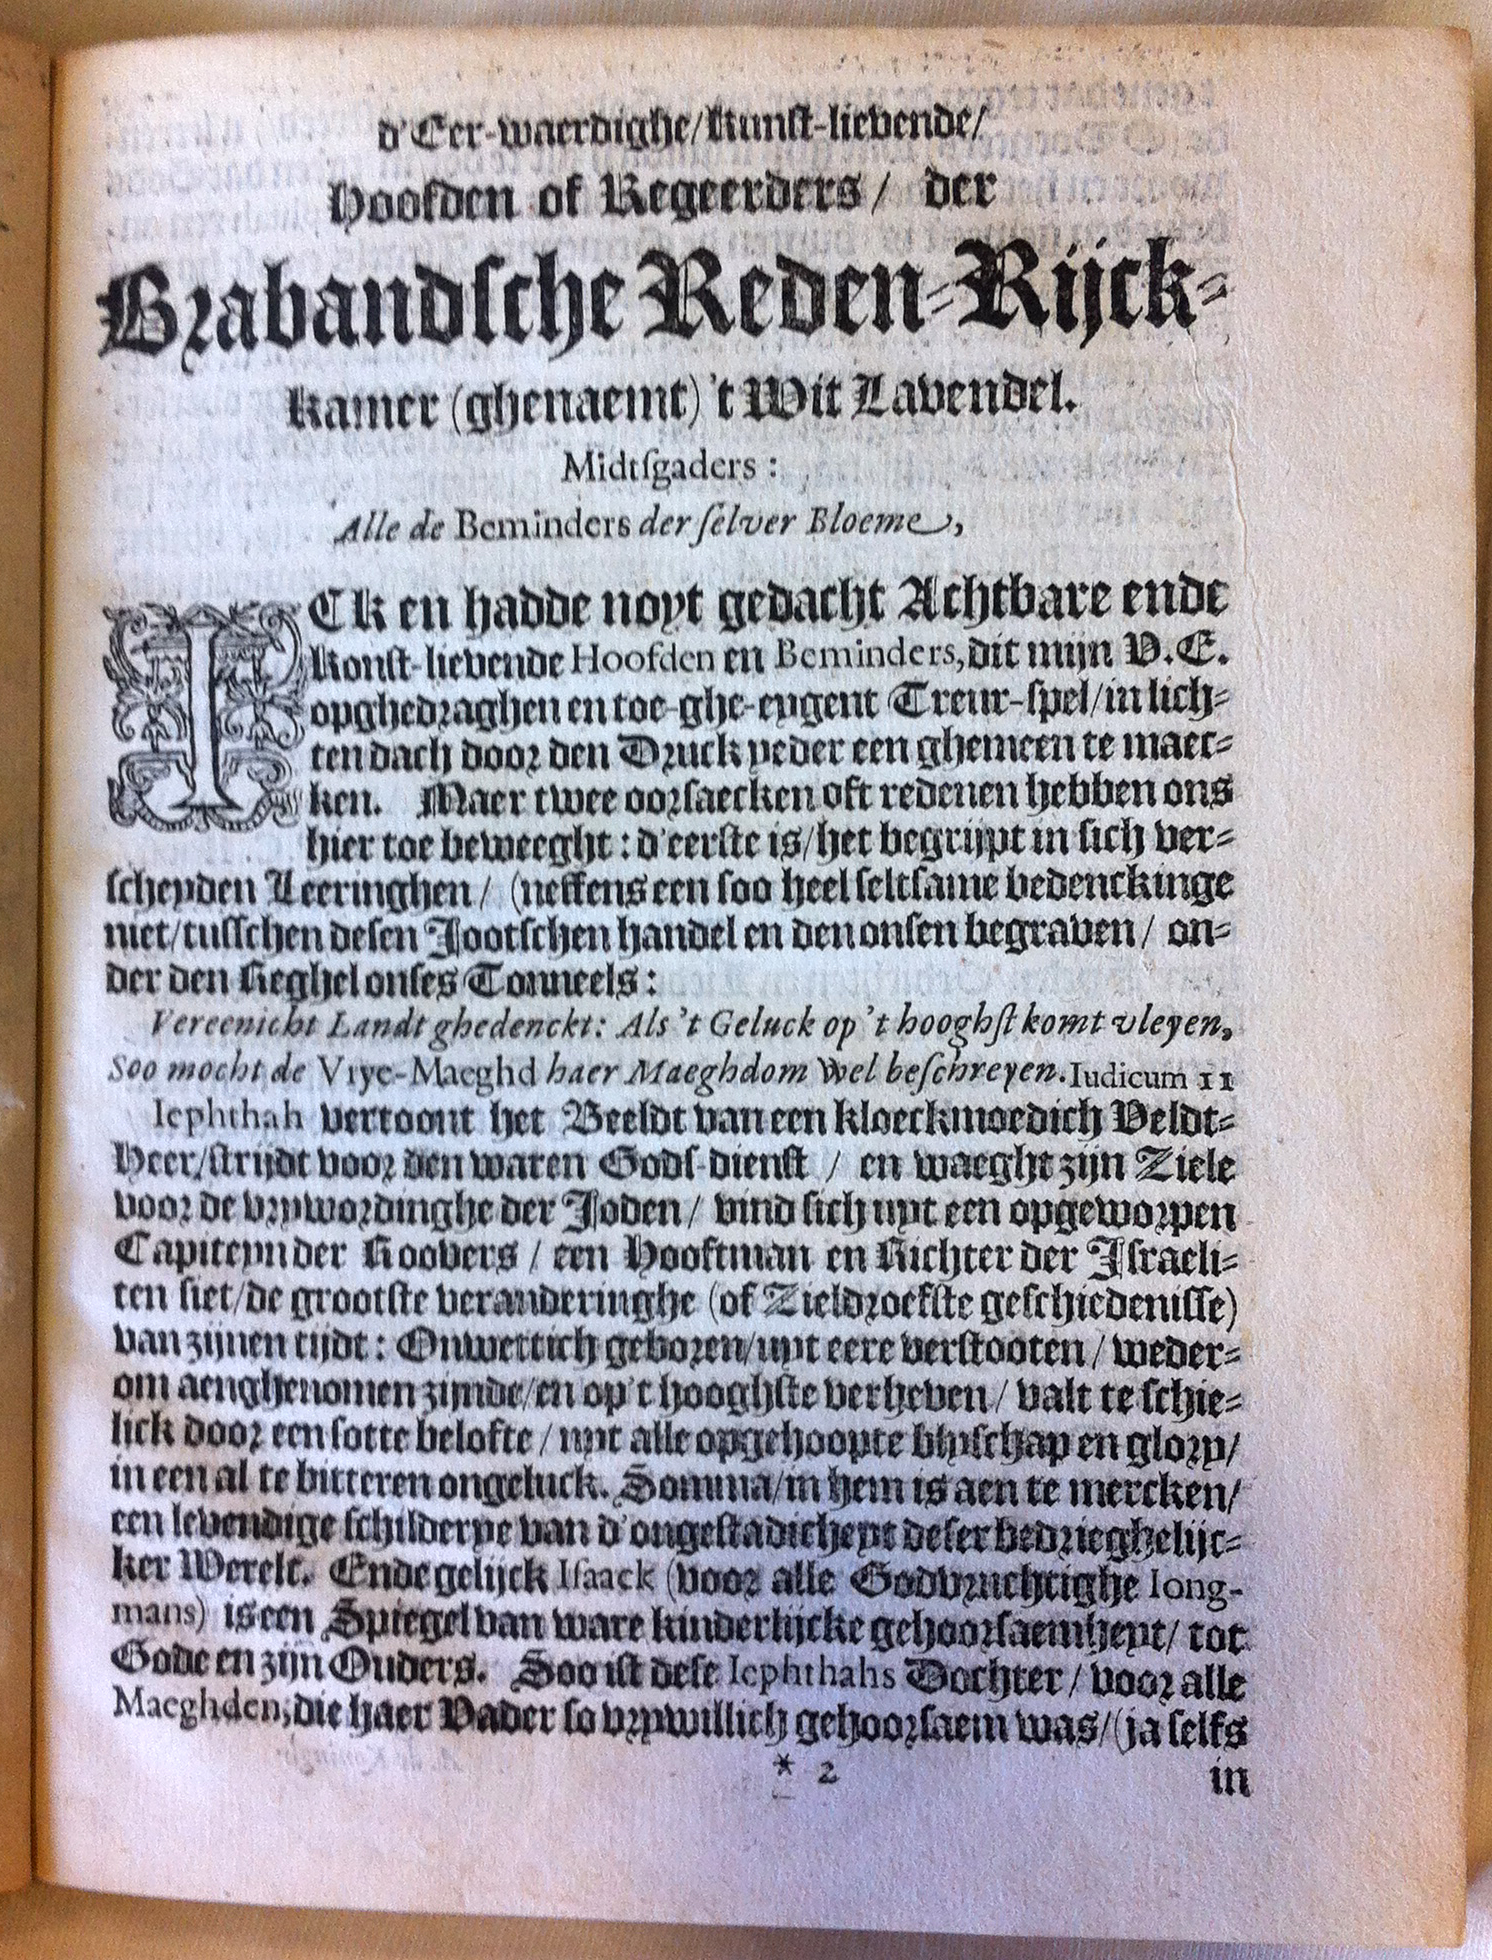 d'Eer-waerdighe/kunst-lievende/
Hoofden of Regeerders/ der
Brabandsche Reden-Rijck-
kamer (ghenaemt) 't Wit Lavendel.
Midtsgaders:
Alle de Beminders der selver Bloeme,
ICk en hadde noyt gedacht Achtbare ende
konst-lievende Hoofden en Beminders, dit mijn V.E.
opghedraghen en toe-ghe-eygent Treur-spel/in lich-
ten dach door den Druck yeder een ghemeen te maec-
ken. Maer twee oorsaecken oft redenen hebben ons
hier toe beweeght: d'eerste is/het begrijpt in sich ver-
scheyden Leeringhen/ (neffens een soo heel seltsame bedenckinge
niet/tusschen desen Jootschen handel en den onsen begraven/ on-
der den Reghel onses Tonneels:
Vereenicht Landt ghedenckt: Als 't Geluck op 't hooghst komt vleyen,
Soo mocht de Vrye-Maeghd haer Maeghdom wel beschreyen. Iudicum 11
Iephthah vertoont het Beeldt van een kloeckmoedich Veldt-
Heer/strijdt voor den waren Gods-dienst / en waeght zijn Ziele
voor de vrywordinghe der Joden/ vind sich uyt een opgeworpen
Capiteyn der Roovers / een Hooftman en Richter der Israeli-
ten siet/de grootste veranderinghe (of Zieldroefste geschiedenisse)
van zijnen tijdt: Onwettich geboren/uyt eere verstooten / weder-
om aenghenomen zijnde/en op't hooghste verheven/ valt te schie-
lick door een sotte belofte / uyt alle opgehoopte blyschap en glory/
in een al te bitteren ongeluck. Somma/in hem is aen te mercken/
een levendige schilderye van d'ongestadicheyt deser bedrieghelijc-
ker Werelt. Ende gelijck Isaack (voor alle Godvruchtighe Iong-
mans) is een Spiegel van ware kinderlijcke gehoorsaemheyt/ tot
Gode en zijn Ouders. Soo ist dese Iephthahs Dochter / voor alle
Maeghden, die haer Vader so vrywillich gehoorsaem was/(ja selfs
* 2
in